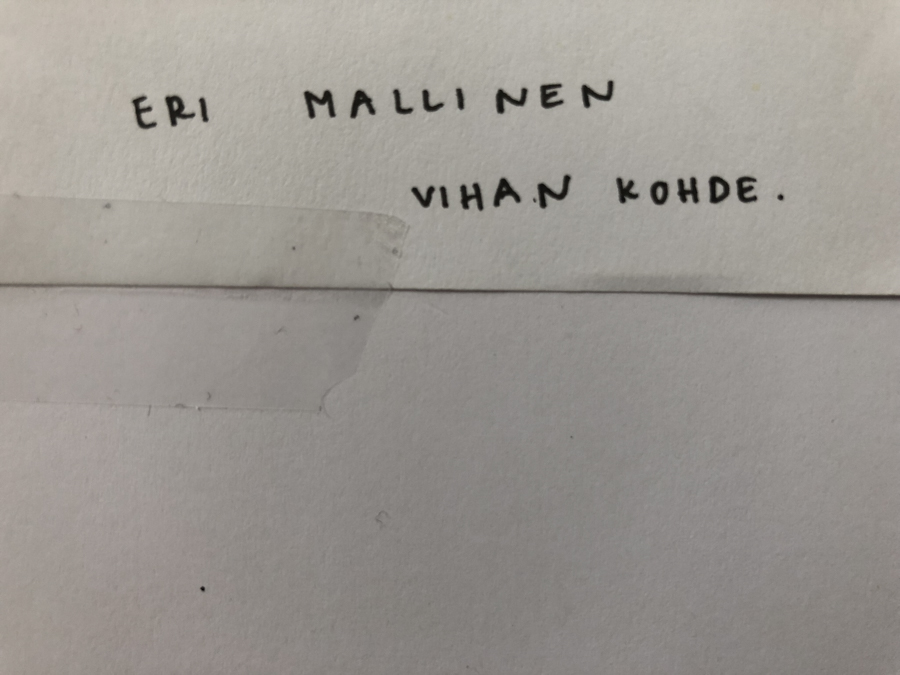 ERI MALLINEN
VIHAN KOHDE.